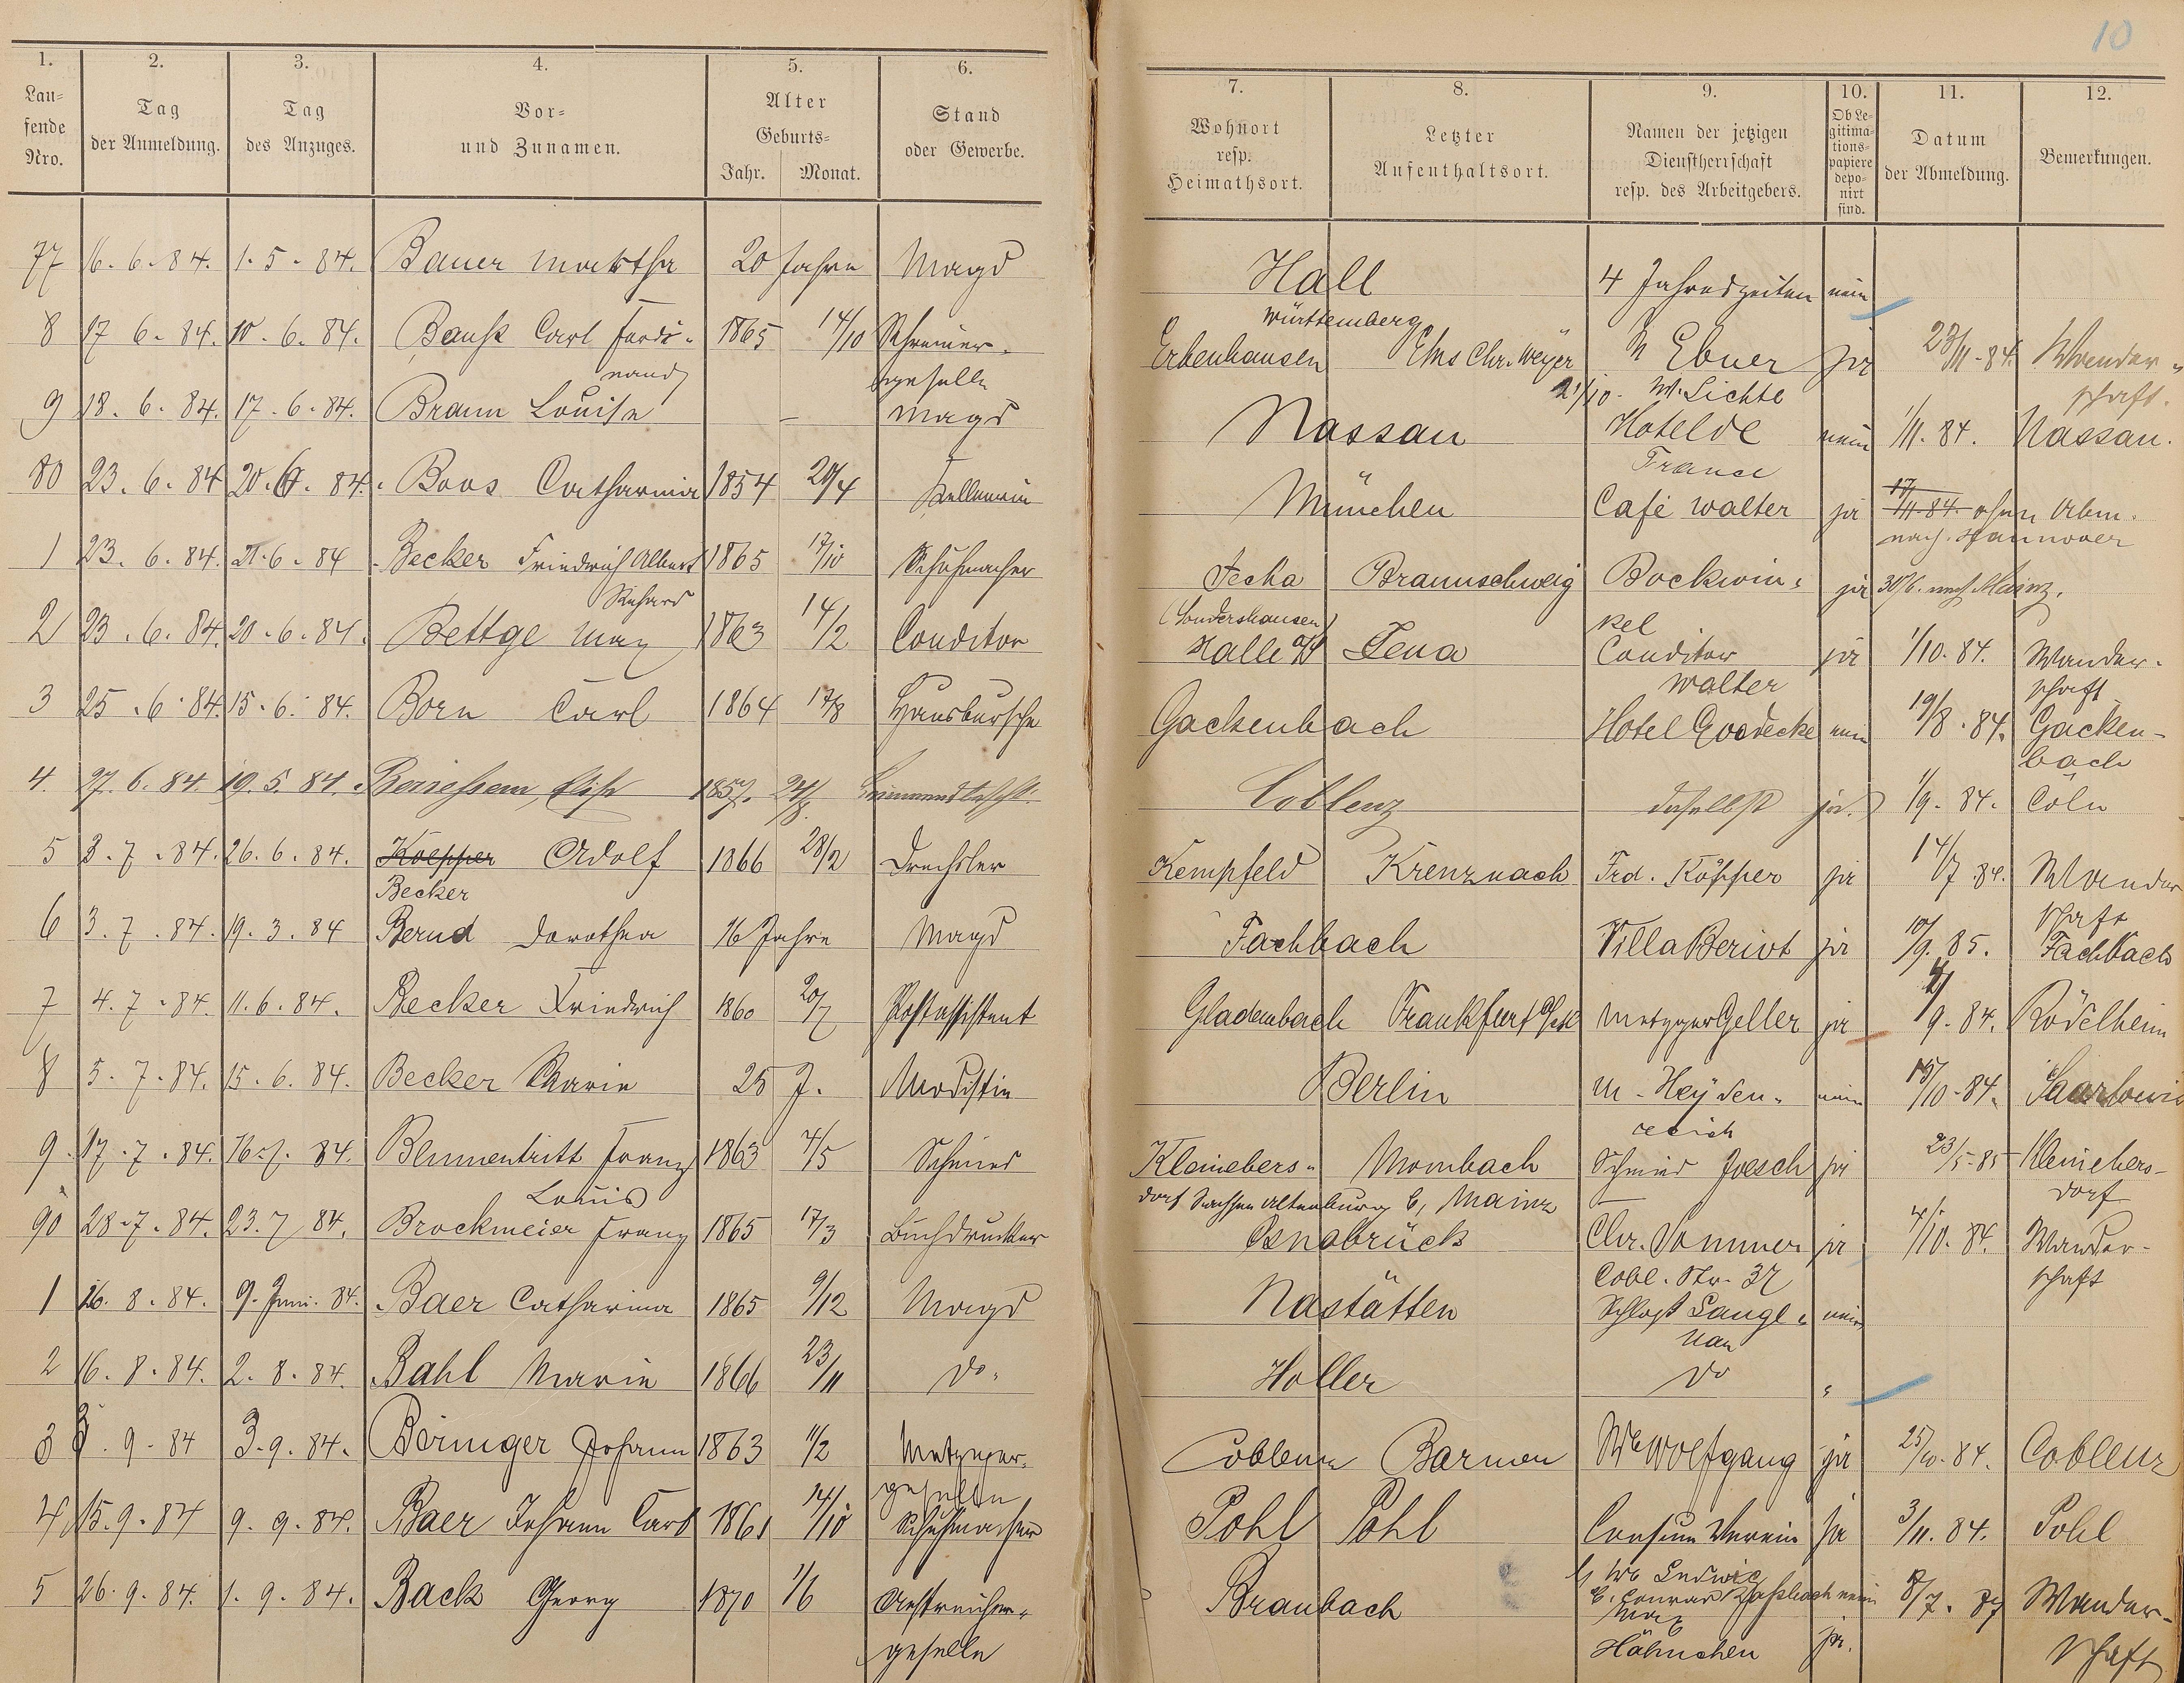 10
1. 2. 3. 4. 5. 6. 7. 8. 9. 10. 11. 12.
Lau=
fende
Nro.
Tag
der Anmeldung.
Tag
des Anzuges.
Vor=
und Zunamen.
Alter
Geburts=
Jahr. Monat.
Stand
oder Gewerbe.
Wohnort
resp.
Heimathsort.
Letzter
Aufenthaltsort.
Namen der jetzigen
Dienstherrschaft
resp. des Arbeitgebers.
Ob Le=
gitima=
tions=
papiere
depo=
nirt
sind.
Datum
der Abmeldung.
Bemerkungen.
77 16. 6. 84. 1. 5. 84. Bauer Martha 20 Jahre Magd Hall 4 Jahreszeiten nein
Württemberg
8 17 6. 84. 10. 6. 84. Carl Ferdi= 1865 14/10 Schreiner= Erbenhausen Ems Chr. Weyer Ebner ja 23/11. 84 Wander=
nand geselle 21/10. W. Lichte schaft.
9 18. 6. 84. 17. 6. 84. Braun Louise – Magd Nassau Hotel de nein 1/11. 84. Nassau.
France
80 23. 6. 84 20. 6. 84. Boos Catharina 1854 20/4 Kellnerin München Café Walter ja 17/11. 84. ohne Abm.
nach Hannover
1 23. 6. 84. 21. 6. 84 Becker Friedrich Albert 1865 17/10 Schuhmacher Jecha Braunschweig Bockwin= ja 30/6. nach Mainz.
Richard (Sondershausen) kel
2 23. 6. 84. 20. 6. 84. Bettge Max 1863 14/2 Conditor Halle a/S Jena Conditor ja 1/10. 84. Wander=
Walter schaft
3 25. 6. 84. 15. 6. 84. Born Carl 1864 17/8 Hausbursche Gackenbach Hotel Goedecke nein 19/8. 84. Gacken=
bach
4. 27. 6. 84. 19. 5. 84. Elise 1857. Coblenz daselbst ja. 1/9. 84. Cöln
5 3. 7. 84. 26. 6. 84. Koepper Adolf 1866 28/2 Drechsler Kempfeld Kreuznach Frd. Köpper ja 14/7. 84. Wander
Becker schaft
6 3. 7. 84. 19. 3. 84 Bernd Dorothea 16 Jahre Magd Fachbach Villa Beriot ja 10/9. 85. Fachbach
7 4. 7. 84. 11. 6. 84. Becker Friedrich 1860 20/7 Postassistent Gladenbach Frankfurt a/M Metzger Geller ja 9. 84. Rödelheim
8 5. 7. 84. 15. 6. 84. Becker Marie 25 J. Modistin Berlin M. Heyden= nein 15/10. 84. Saarlouis
reich
9. 17. 7. 84. 16. 7. 84. Blumentritt Franz 1863 4/5 Schmied Kleinebers= Mombach Schmied Joesch ja 23/5. 85 Kleinebers=
Louis dorf Sachsen Altenburg b, Mainz dorf
90 28. 7. 84. 23. 7 84. Brockmeier Franz 1865 17/3 Buchdrucker Osnabrück Chr. Sommer ja 4/10. 84. Wander=
Cobl. Str. 37 schaft
1 16. 8. 84. 9. Juni. 84. Baer Catharina 1865 9/12 Magd Nastätten Schloß Lange= nein
nau
2 16. 8. 84. 2. 8. 84. Bahl Marie 1866 23/11 do. Holler do "
3 3. 9. 84 3. 9. 84. Böringer Johann 1863 11/2 Metzger= Coblenz Barmen We Wolfgang ja 25/10. 84. Coblenz
geselle
4 15. 9. 84 9. 9. 84. Baer Johann Carl 1861 14/10 Schuhmacher Pohl Pohl Consum Verein ja 3/11. 84. Pohl
5 26. 9. 84. 1. 9. 84. Back Georg 1870 1/6 Anstreicher= Braubach b We Ludwig
b. Conrad nein 8/7. 87 Wander=
geselle Max
Hähnchen ja. schaft